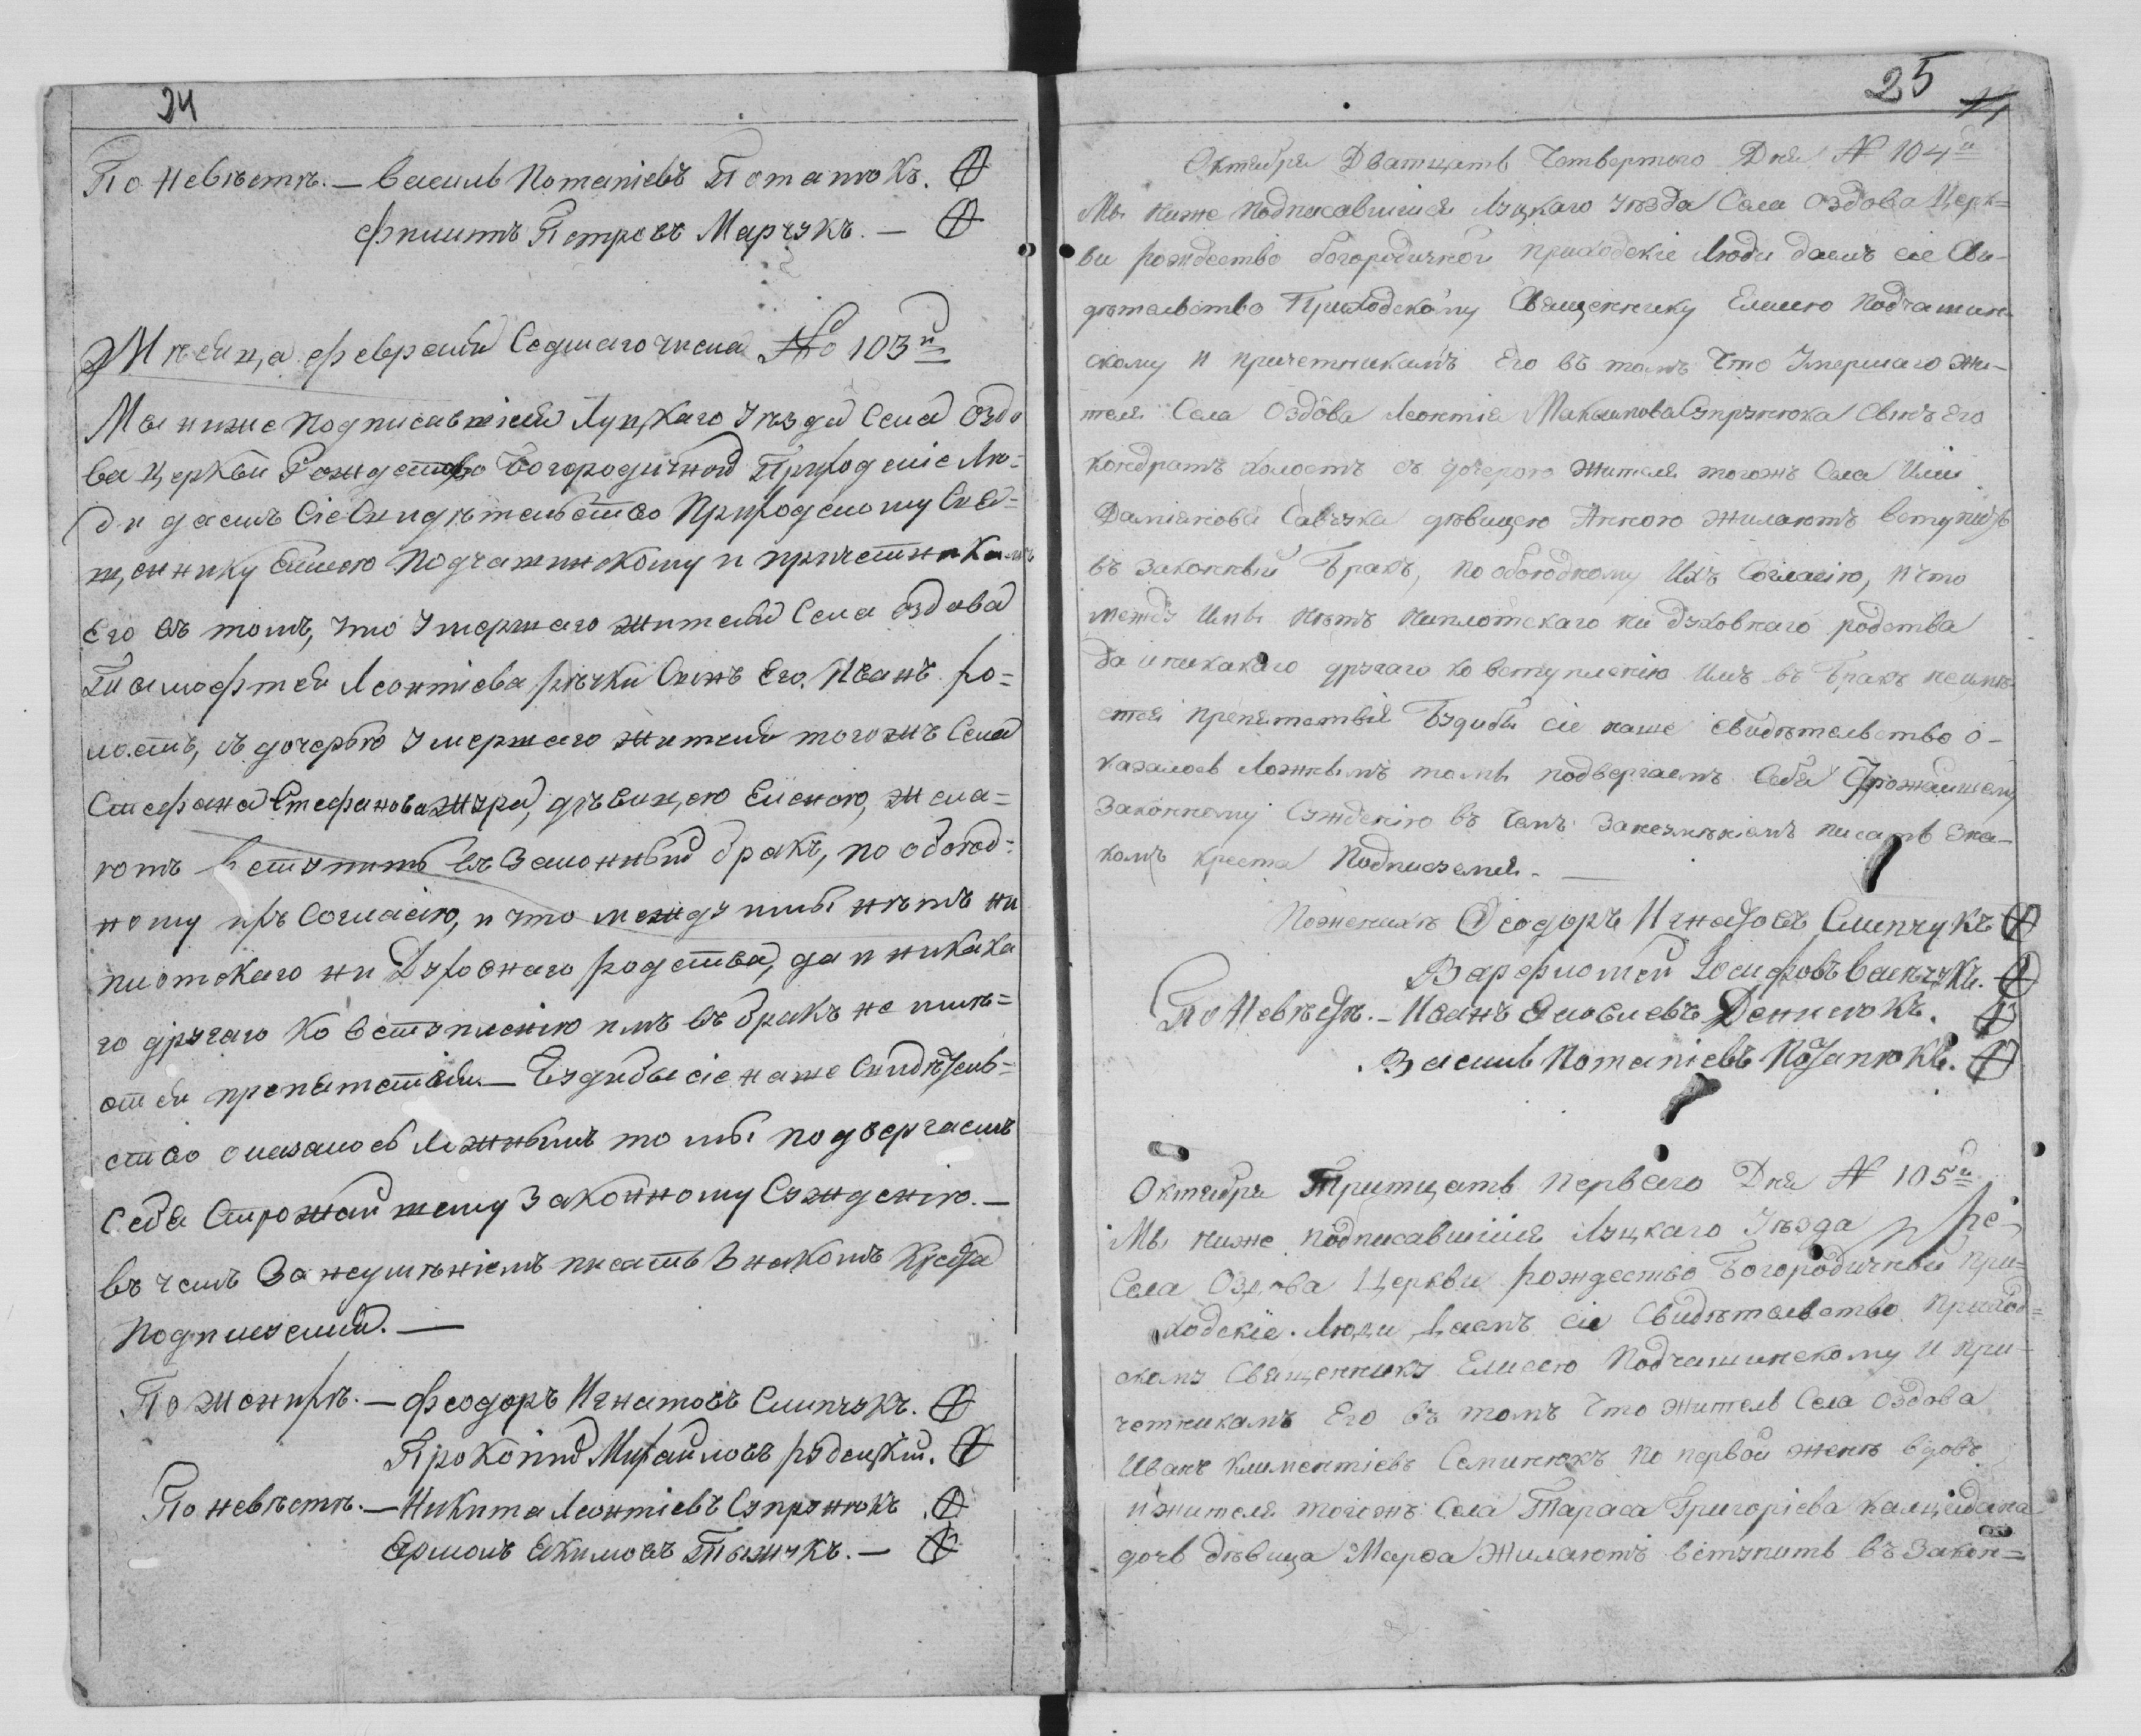 24
По Невѣстѣ. — Василь Потапіевъ Потапюкъ.
Филиппъ Петровъ Марчукъ. —
Мѣсяца февраля Седмаго числа № 103й
Мы ниже подписавшіеся Луцкаго Уѣзда Села Оздо
ва Церкви Рождество Богородичной Приходскіе Лю=
ди даемъ Сіе Свидѣтельство Приходскому Свя=
щеннику Елисею Подчашинскому и причетникамъ
Его въ томъ, что Умершаго жителя Села Оздова
Тимофтея Леонтіева Сынъ Его Иванъ хо=
лостъ, съ дочерью Умершаго жителя тогожъ Села
Стефана Стефанова Жура, дѣвицею Еленою, жела=
ютъ вступить въ Законный бракъ, по обоюд=
ному ихъ Согласію, и что между ими нѣтъ ни
плотскаго ни Духовнаго родства, да и никака
го другаго ко вступленію имъ въ бракъ не имѣ=
ется препятствія. — Буди бы сіе наше Свидѣтель=
ство оказалось Ложнымъ то мы подвергаемъ
Себя Строжайшему Законному Сужденію. —
въ чемъ За неумѣніемъ писать Знакомъ Креста
Подписуемся. —
По женихѣ. — Феодоръ Игнатовъ Слипчукъ.
Прокопій Михайловъ Рудецкій.
По невѣстѣ. — Никита Леонтіевъ Супрунюкъ
Ярмолъ Якимовъ —
25
Октября Дватцать Четвертого Дня № 104й
Мы ниже подписавшіися Луцкаго уѣзда Села Оздова Церк=
ви рождество богородичной приходскіе Люди даемъ сіе Сви-
дѣтельство Приходскому Священнику Елисею Подчашин
скому и причетникамъ Его въ томъ Что Умершаго жи-
теля Села Оздова Леонтія Максимова Супрунюка Сынъ Его
Кондратъ холостъ съ дочерою жителя тогожъ Села Иліи
Даміянова Савчука дѣвицею Анною жилаютъ вступить
въ законный Бракъ, по обоюдному Ихъ Согласію, и что
между ими нѣтъ ниплотскаго ни духовнаго родства
да и никакаго другаго ко вступленію имъ въ Бракъ неимѣ
ется препятствія Будибы сіе наше свидѣтельство о-
казалось Ложнымъ томы подвергаемъ Себя Строжайшему
Законному Сужденію въ Чемъ Занеумѣніемъ писать Зна-
комъ креста Подписуемся. —
Поженихѣ Феодоръ Игнатовъ Слипчукъ
Варфломей Іосифовъ Васючукъ.
По Невѣстѣ. — Иванъ Яковлевъ Денисюкъ.
Василь Потапіевъ Потапюкъ.
Октября Тритцать Первего Дня № 105й
Мы ниже подписавшіися Луцкаго Уѣзда
Села Оздова Церкви рождество Богородичной При=
ходскіе Люди Даемъ сіе Свидѣтельство Приход=
скому Священнику Елисею Подчашинскому и при-
четникамъ Его въ томъ Что житель Села Оздова
Иванъ Климентіевъ Семинюкъ по первой женѣ вдовъ
и жителя тогожъ Села Тараса Григоріева
дочь дѣвица Марѳа Жилаютъ вступить въ Закон=